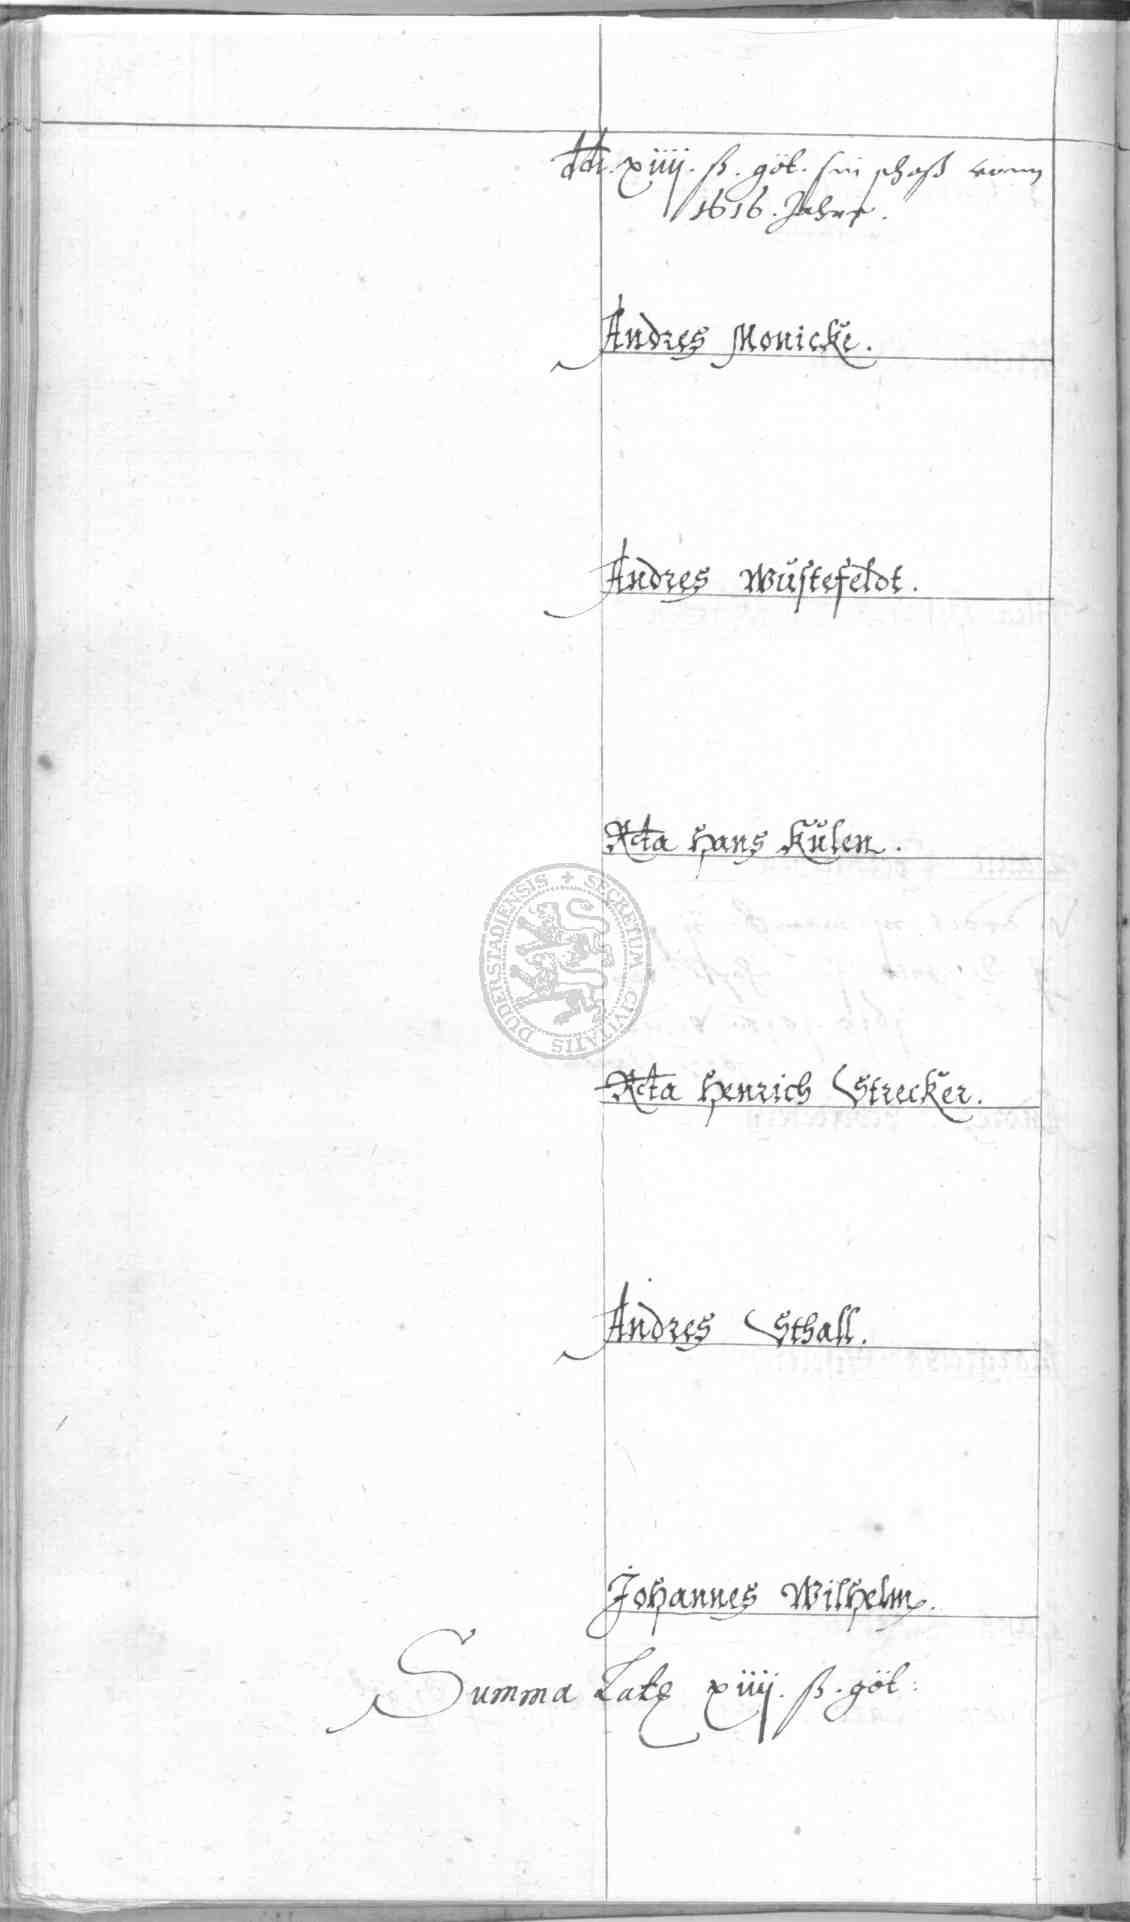 ddt. xiiij. ß. göt. sin schoß vonn
1616. Jahre.
Andres Monicke.
Andres Wüstefeldt.
Rcta Hans Külen.
SECRETUM CIVITATIS DUDERSTADIENSIS
Rcta Henrich Strecker.
Andres Sthall.
Johannes Wilhelm.
Summa Latq xiiij. ß. göt: